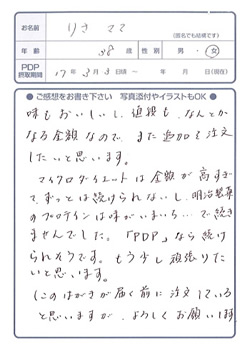 お名前 りさママ
(匿名でも結構です)
年齢 38歳 性別 男・女
PDP摂取期間 17年3月3日頃〜 年 月 日(現在)
●ご感想をお書き下さい 写真添付やイラストもOK●
味もおいしいし、値段も、なんとか
なる金額なので、また追加を注文
したいと思います。
マイクロダイエットは金額が高すぎ
て、ずっとは続けられないし、明治製菓
のプロテインは味がいまいち…で続き
ませんでした。「PDP」なら続け
られそうです。もう少し頑張りた
いと思います。
(このはがきが届く前に注文している
と思いますが、よろしくお願いします